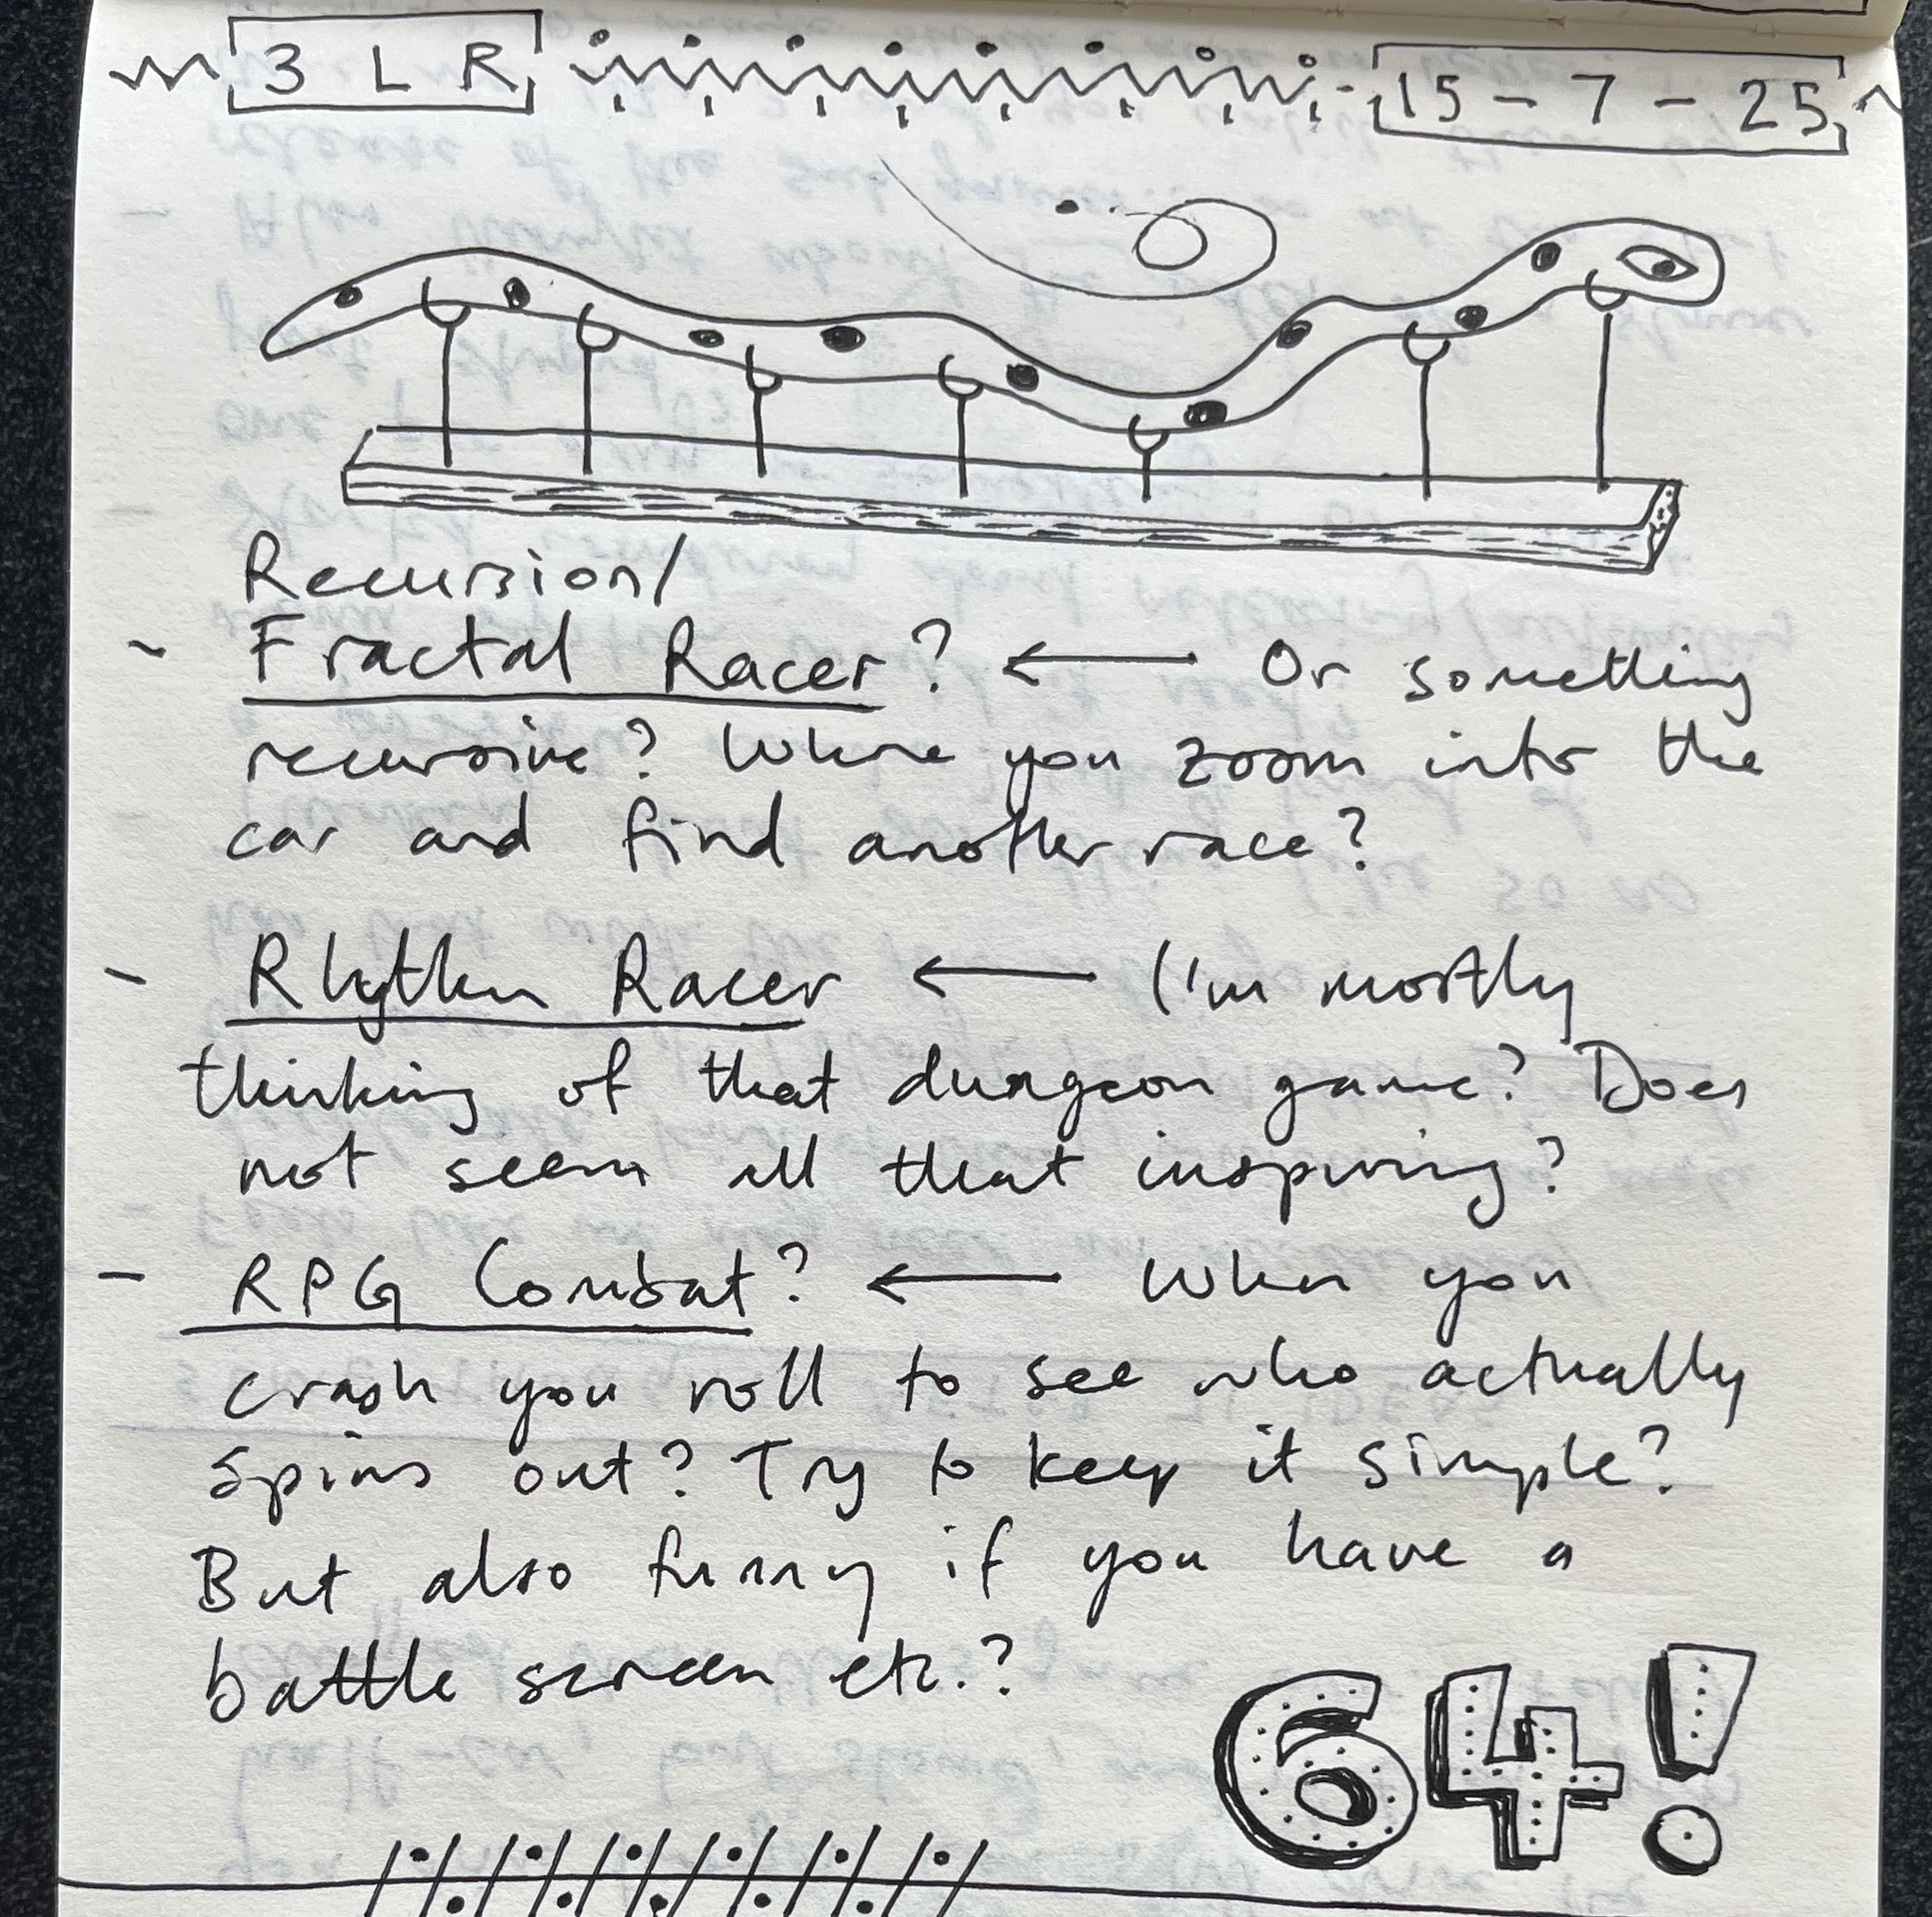 3 L R
15 - 7 - 25
Recursion/
- Fractal Racer? ← Or something
recursive? Where you zoom into the
car and find another race?
- Rhythm Racer ← (I'm mostly
thinking of that dungeon game? Does
not seem all that inspiring?
- RPG Combat? ← When you
crash you roll to see who actually
spins out? Try to keep it simple?
But also funny if you have a
battle screen etc.?
64!